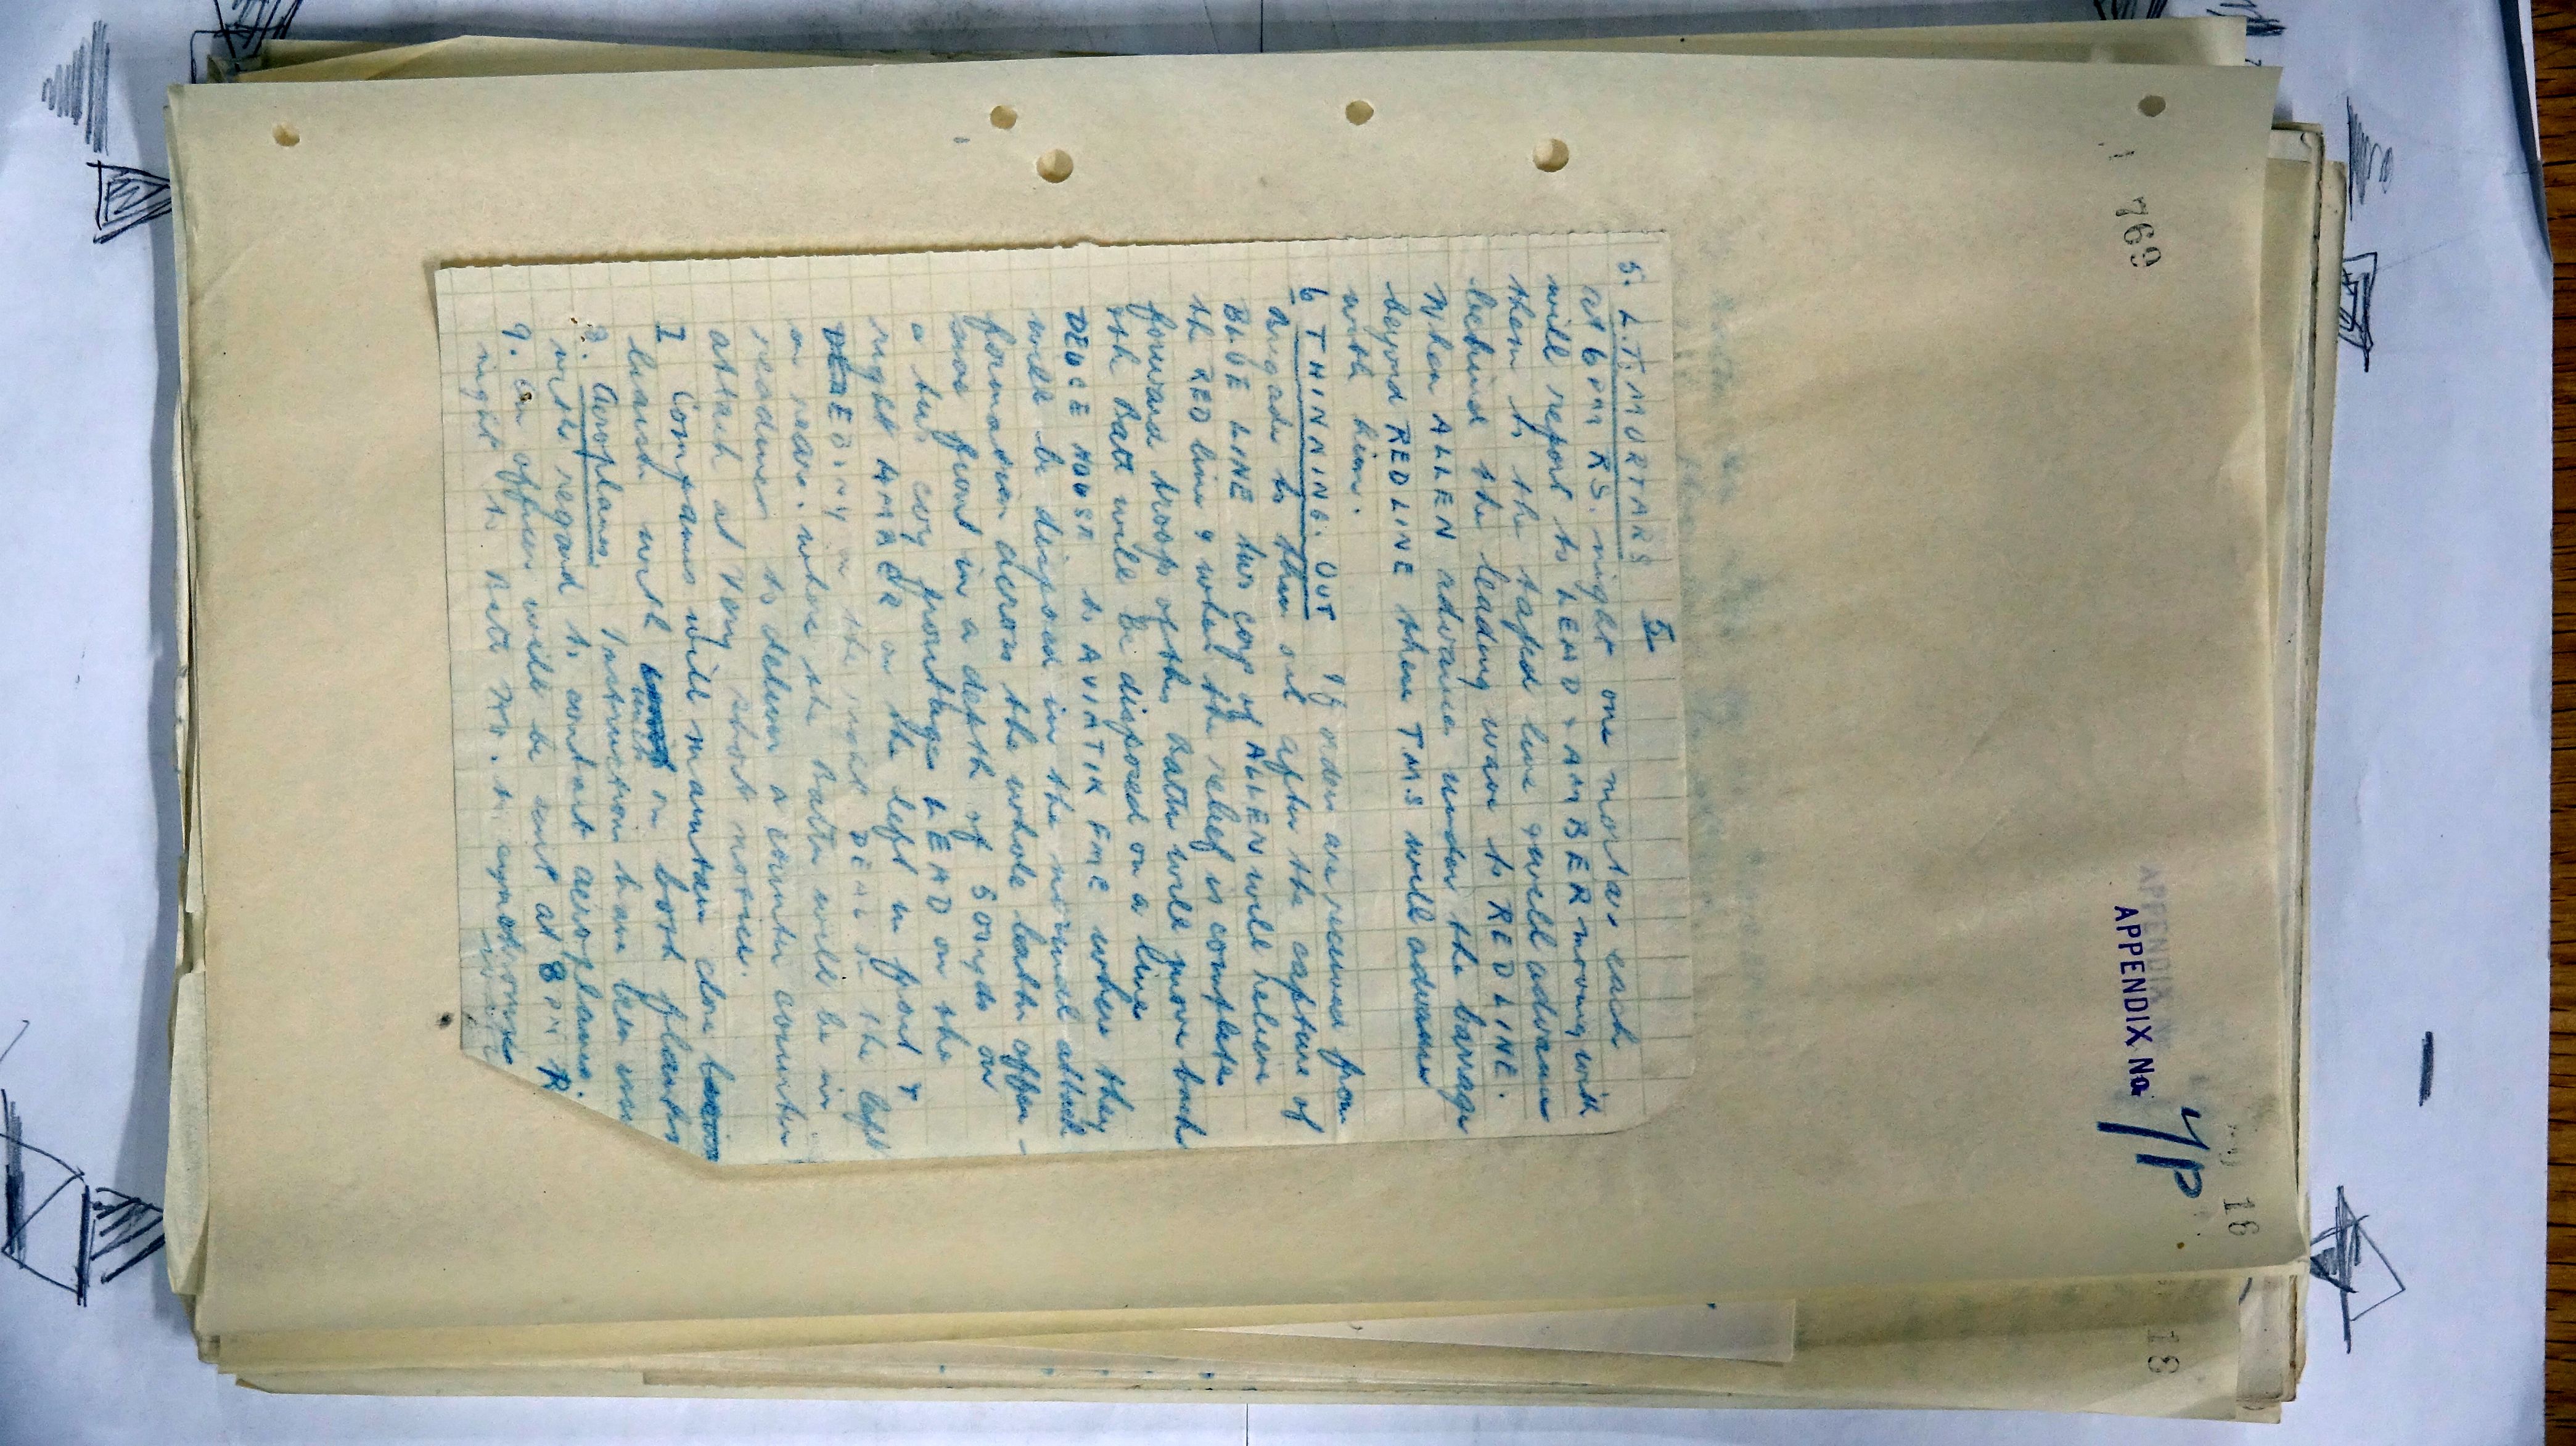 769
APPENDIX No.
16
5
5. L.T. MORTARS
at 6 PM R.S. night one mortar each
will report to LEAD & AMBER moving with
them to the taped line & will advance
behind the leading wave to RED LINE.
When ALLEN advances under the barrage
beyond RED LINE these TMS will advance
with him.
6 THINNING. OUT If orders are received from
Brigade to thin out after the capture of
BLUE LINE two coys of ALLEN will relieve
the RED line & when the relief is complete
forward troops of this Battn will move back
the Batt will be disposed on a line
DEUCE HOUSE to AVIATIK FME where they
will be disposed in the normal attack
formation across the whole battn offen-
sive front in a depth of 500 yds on
a two coy frontage LEAD on the
right AMBER on the left in front &
EBINY on the right DEAL on the left
in rear. where the Battn will be in
readiness to deliver a counter counter
attack at very short notice.
7 Companies will maintain close
liaison with units on both flanks
8. Aeroplanes Instructions have been issued
with regard to contact aeroplanes.
9. An officer will be sent at 8 PM R.
night to Batt HQ. to synchronise
18